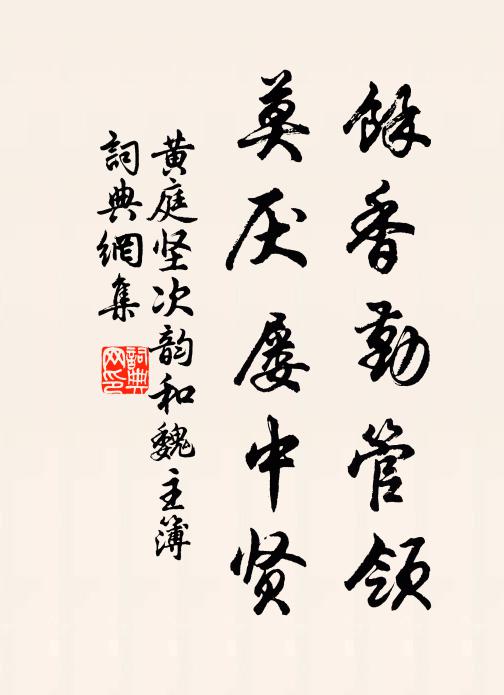 餘香勤管領
莫厌屡中贤
黄庭坚次韵和魏主簿
詞典網集
詞典网印